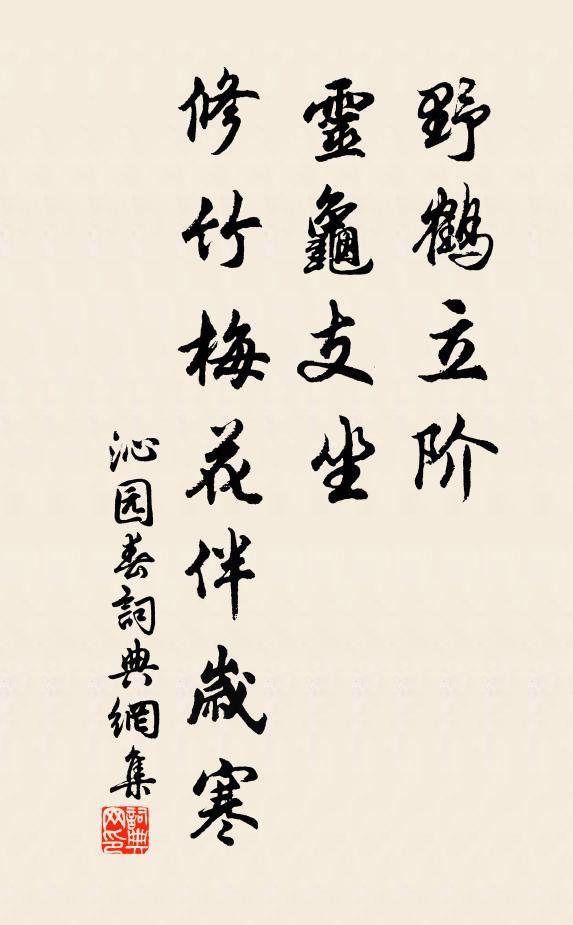 野鶴立阶
靈龜支坐
修竹梅花伴歲寒
沁园春詞典網集
詞典网印